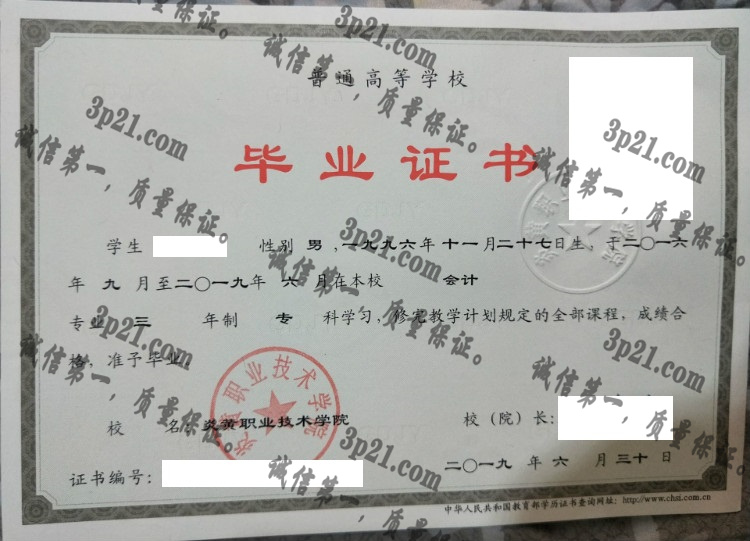 普通高等学校
毕业证书
学生 性别 男 ,一九九六年 十一月二十七日生，于二〇一六
年 九 月至二〇一九年 六 月在本校 会计
专业 三 年制 专 科学习，修完教学计划规定的全部课程，成绩合
格，准予毕业。
校 名：炎黄职业技术学院
校（院）长：
证书编号：
二〇一九 年 六 月 三十 日
中华人民共和国教育部学历证书查询网址：http://www.chsi.com.cn
炎黄职业技术学院
3p21.com
诚信第一，质量保证。
3p21.com
诚信第一，质量保证。
3p21.com
诚信第一，质量保证。
3p21.com
诚信第一，质量保证。
3p21.com
诚信第一，质量保证。
3p21.com
诚信第一，质量保证。
3p21.com
诚信第一，质量保证。
3p21.com
诚信第一，质量保证。